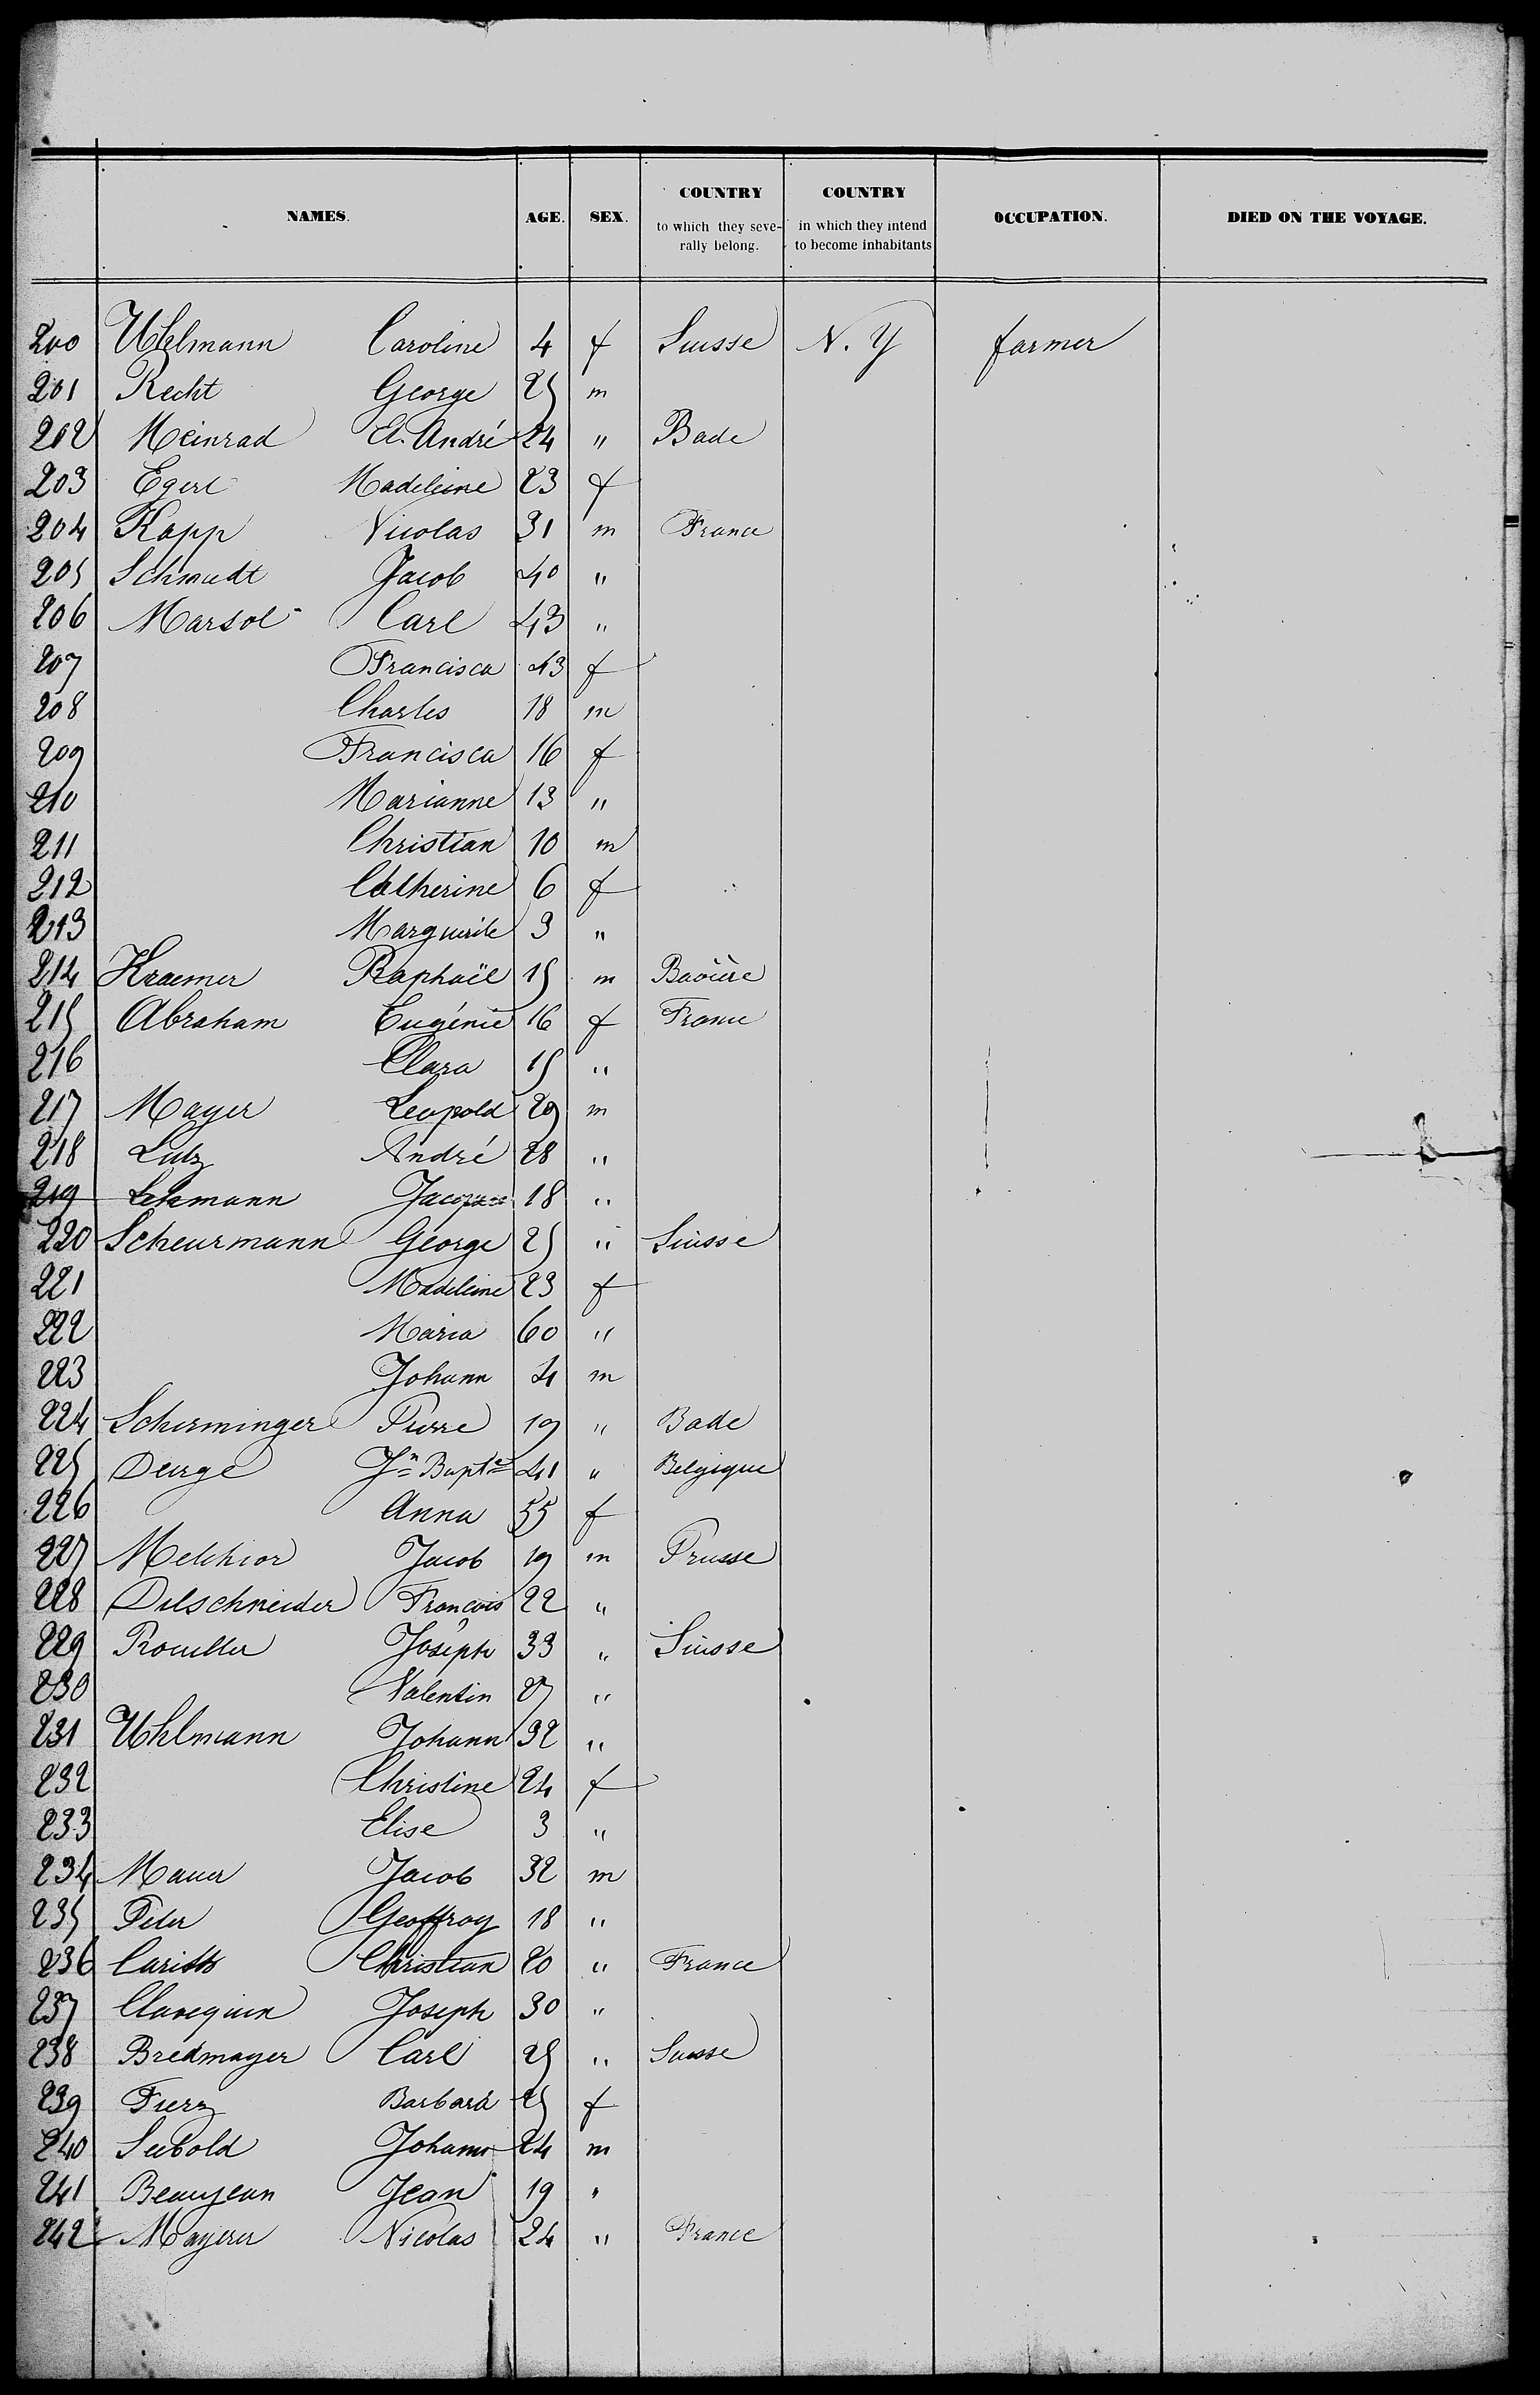 NAMES. AGE. SEX. COUNTRY to which they seve-rally belong. COUNTRY in which they intend to become inhabitants OCCUPATION. DIED ON THE VOYAGE.
200 Uhlmann Caroline 4 f Suisse N. Y farmer
201 Recht George 25 m
202 Meinrad A. André 24 " Bade
203 Egert Madeleine 23 f
204 Kapp Nicolas 31 m France
205 Schmidt Jacob 40 "
206 Marsol Carl 43 "
207 Francisca 43 f
208 Charles 18 m
209 Francisca 16 f
210 Marianne 13 "
211 Christian 10 m
212 Catherine 6 f
213 Marguerite 3 "
214 Kraemer Raphaël 15 m Bavière
215 Abraham Eugénie 16 f France
216 Clara 15 "
217 Mayer Leopold 29 m
218 Lutz André 28 "
219 Lehmann Jacques 18 "
220 Scheurmann George 25 " Suisse
221 Madeleine 23 f
222 Maria 60 "
223 Johann 4 m
224 Schirminger Pierre 19 " Bade
225 Deurge Jn Bapte 41 " Belgique
226 Anna 55 f
227 Melchior Jacob 19 m Prusse
228 Dilschneider François 22 "
229 Rouiller Joseph 33 " Suisse
230 Valentin 27 "
231 Uhlmann Johann 32 "
232 Christine 24 f
233 Elise 3 "
234 Mauer Jacob 32 m
235 Peter Geoffroy 18 "
236 Christian 20 " France
237 Clavequin Joseph 30 "
238 Bredmayer Carl 25 " Suisse
239 Fierz Barbara 25 f
240 Seibold Johann 24 m
241 Beaujean Jean 19 "
242 Mayerer Nicolas 24 " France